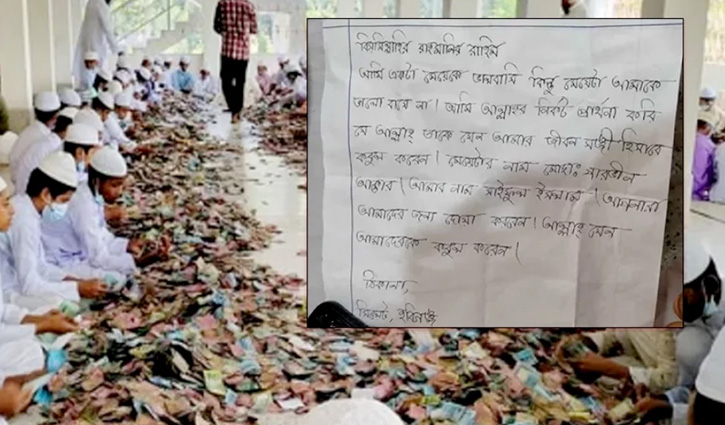 বিসমিল্লাহির রাহমানির রাহিম
আমি একটা মেয়েকে ভালবাসি কিন্তু মেয়েটা আমাকে
ভালো বাসে না। আমি আল্লাহর নিকট প্রার্থনা করি
যে আল্লাহ তাকে যেন আমার জীবন সঙ্গী হিসাবে
কবুল করেন। মেয়েটার নাম মোছাঃ পারভীন
আক্তার। আমার নাম সাইফুল ইসলাম। আপনারা
আমাদের জন্য দোয়া করবেন। আল্লাহ যেন
আমাদেরকে কবুল করেন।
ঠিকানা,
সিলেট, হবিগঞ্জ